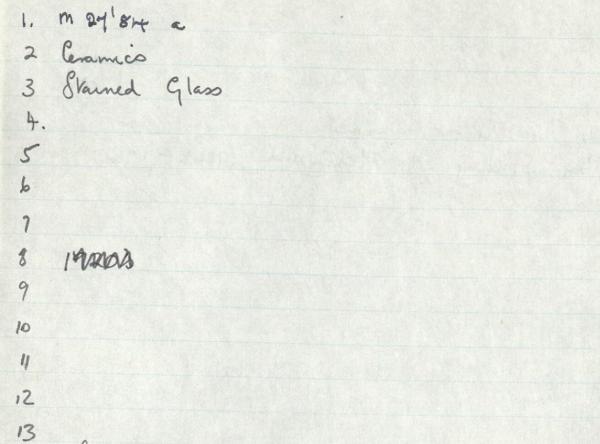 1. M 27'84 a
2 Ceramics
3 Stained Glass
4.
5
6
7
8
9
10
11
12
13